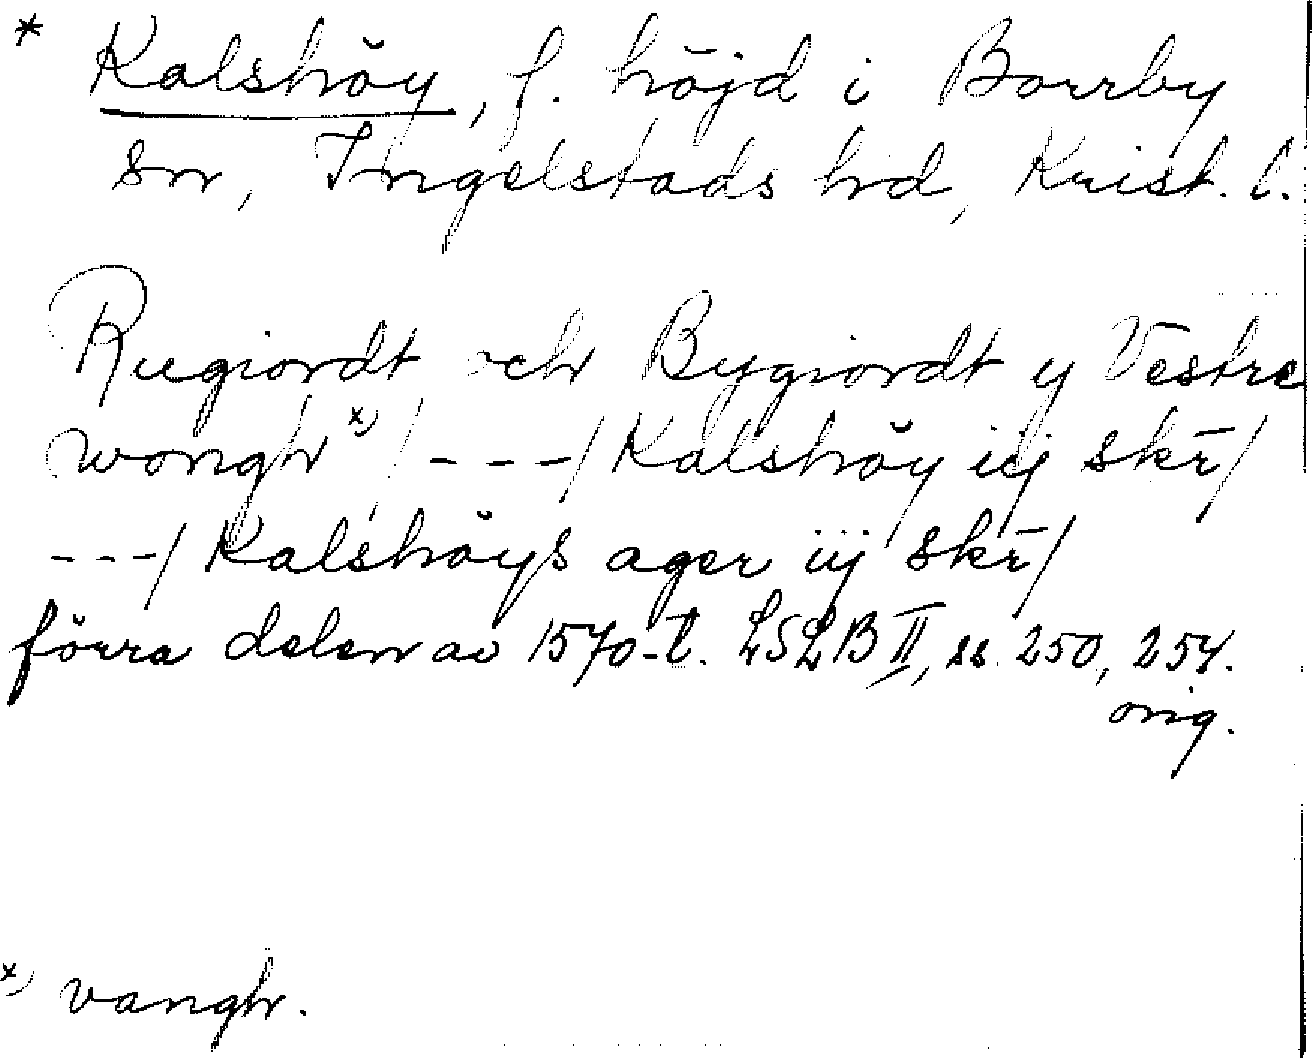 * Kalshöy, f. höjd i Borrby
sn, Ingelstads hd, Krist. l.
Rugiordt och Bygiordt y Vestre
wongh x) / - - - / Kalshöy iij skr̄ /
- - - / Kalshöys ager iij skr̄ /
förra delen av 1570-t. LSLB II, ss. 250, 254.
orig.
x) vangh.